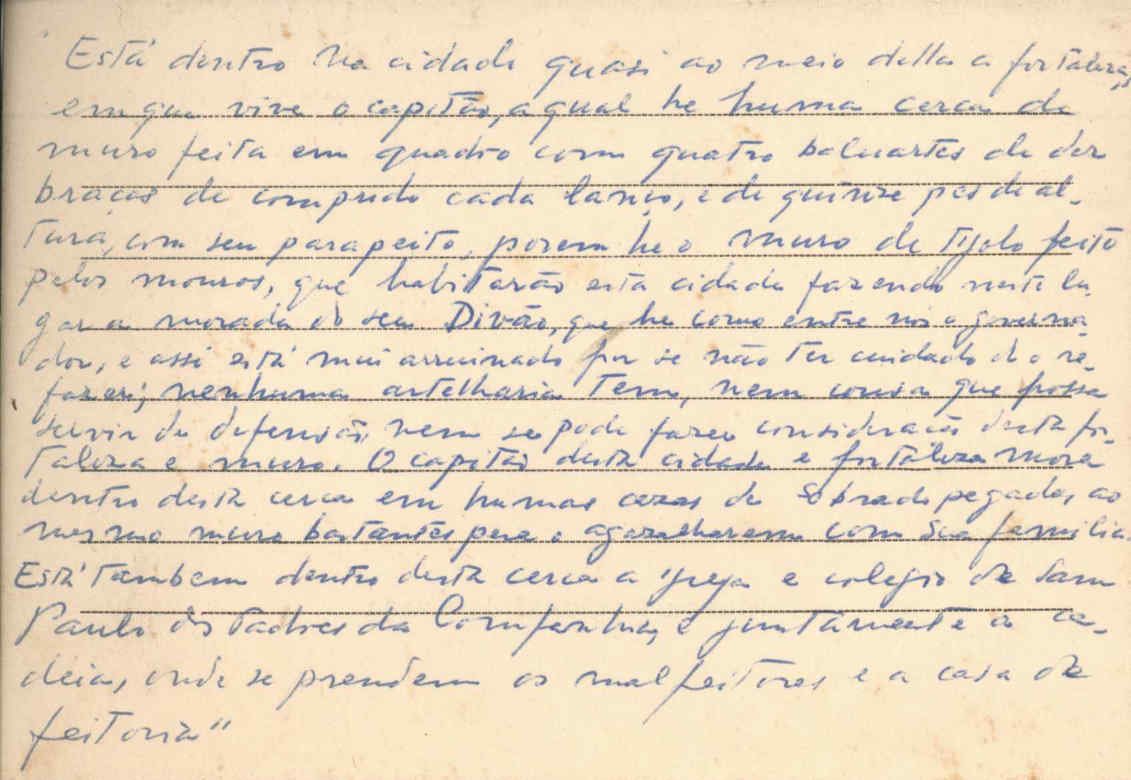 "Está dentro na cidade quasi ao meio della a fortaleza,
em que vive o capitão, a qual he huma cerca de
muro feita em quadro com quatro baluartes de dez
braças de comprido cada lanço, e de quinze pes de al-
tura, com seu parapeito, porem he o muro de tijolo feito
pelos mouros, que habitarão esta cidade fazendo neste lu-
gar a morada do seu Divão, que he como entre nós o governa-
dor, e assi está mui arruinado por se não ter cuidado de o re-
fazer; nenhuma artelharia tem, nem cousa que possa
servir de defensão, nem se pode fazer consideração desta for-
taleza e muro. O capitão desta cidade e fortaleza mora
dentro desta cerca em humas cazas de sobrado pegadas ao
mesmo muro bastantes pera o agazalharem com sua familia.
Está tambem dentro desta cerca a igreja e colegio de Sam
Paulo dos Padres da Companhia, e juntamente a ca-
deia, onde se prendem os malfeitores e a casa da
feitoria"